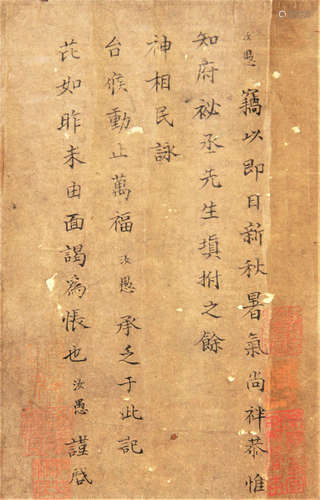 汝愚 竊以即日新秋暑氣尚袢恭惟
知府祕丞先生填拊之餘
神相民詠
台候動止萬福汝愚承乏于此記
芘如昨未由面謁為悵也汝愚謹啓